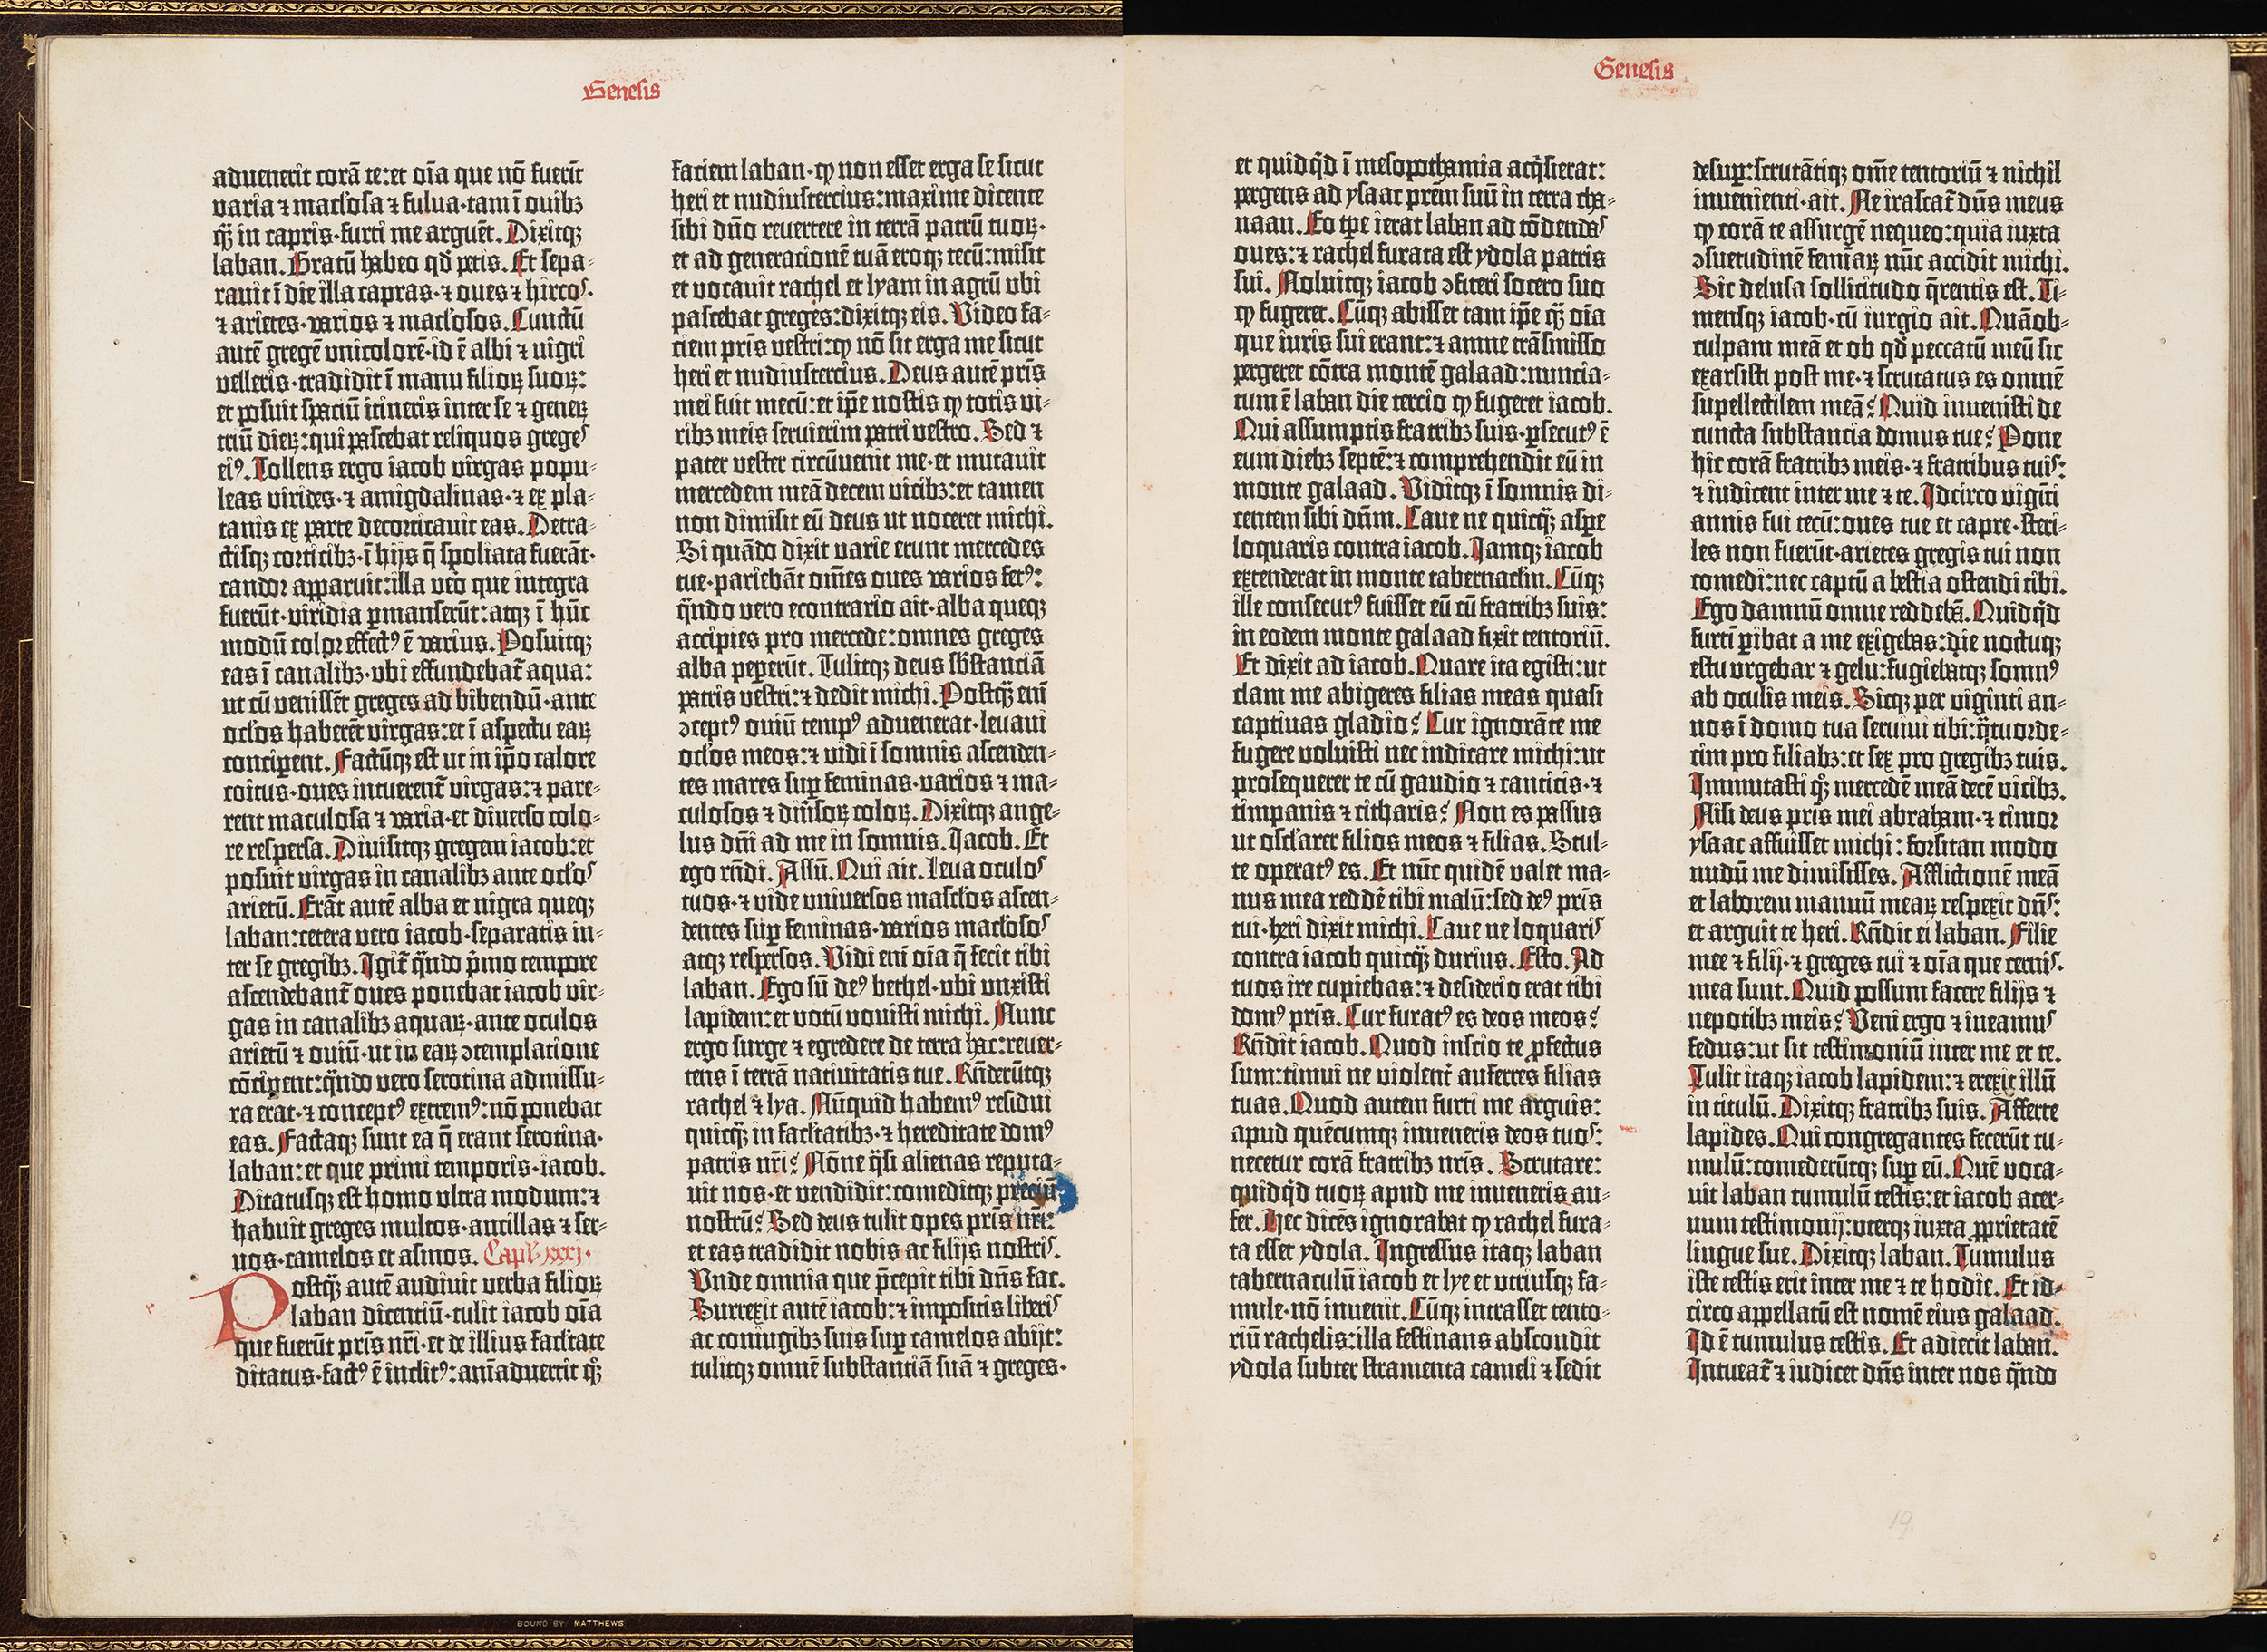 Genesis
aduenerit corā te:et oīa que nō fuerīt
varia ⁊ macl'osa ⁊ fulua·tam ī ouibꝫ
qꝫ̄ in capris·furti me arguēt. Dixitqꝫ
laban. Gratū habeo qđ petis. Et sepa-
rauit ī die illa capras·⁊ oues ⁊ hircos.
⁊ arietes·varios ⁊ macl'osos. Cunctū
autē gregē vnicolorē·id ē albi ⁊ nigri
velleris·tradidit ī manu filioꝝ suoꝝ:
et posuit spaciū itineris inter se ⁊ generꝝ
triū dierꝝ:qui pascebat reliquos greges
ei⁹. Tollens ergo iacob virgas popu-
leas virides·⁊ amigdalinas·⁊ ex pla-
tanis ex parte decorticauit eas. Detra-
ctisqꝫ corticibꝫ·ī hijs q̄ spoliata fuerāt·
candor apparuit:illa v̄o que integra
fuerūt·viridia ꝑmanserūt:atqꝫ ī hūc
modū color effect⁹ ē varius. Posuitqꝫ
eas ī canalibꝫ·vbi effundebat̄ aqua:
ut cū venissēt greges ad bibendū·ante
ocl'os haberēt virgas:et ī aspectu eaꝝ
conciperent. Factūqꝫ est ut in ip̄o calore
coitus·oues intuerent̄ virgas:⁊ pare-
rent maculosa ⁊ varia·et diuerso colo-
re respersa. Diuisitqꝫ gregem iacob:et
posuit virgas in canalibꝫ ante ocl'os
arietū. Erāt autē alba et nigra queqꝫ
laban:cetera vero iacob·separatis in-
ter se gregibꝫ. Igit̄ qn̄do p̄mo tempore
ascendebant̄ oues ponebat iacob vir-
gas in canalibꝫ aquaꝝ·ante oculos
arietū ⁊ ouiū·ut in eaꝝ ↄtemplatione
cōciperent:qn̄do vero serotina admissu-
ra erat·⁊ concept⁹ extrem⁹:nō ponebat
eas. Factaqꝫ sunt ea q̄ erant serotina·
laban:et que primi temporis·iacob.
Ditatusqꝫ est homo vltra modum:⁊
habuit greges multos·ancillas ⁊ ser-
uos·camelos et asinos. Capl'. xxxi·
Postqꝫ̄ autē audiuit verba filioꝝ
laban dicentiū·tulit iacob oīa
que fuerūt pr̄is nr̄i·et de illius facl'tate
ditatus·fact⁹ ē inclit⁹:aīaduertit qꝫ
faciem laban·ꝙ non esset erga se sicut
heri et nudiustercius:maxime dicente
sibi dn̄o reuertere in terrā patrū tuoꝝ·
et ad generacionē tuā eroqꝫ tecū:misit
et vocauit rachel et lyam in agrū vbi
pascebat greges:dixitqꝫ eis. Video fa-
ciem pr̄is vestri:ꝙ nō sit erga me sicut
heri et nudiustercius. Deus autē pr̄is
mei fuit mecū:et ip̄e nostis ꝙ totis vi-
ribꝫ meis seruierim patri vestro. Sed ⁊
pater vester circūuenit me·et mutauit
mercedem meā decem vicibꝫ:et tamen
non dimisit eū deus ut noceret michi.
Si quādo dixit varie erunt mercedes
tue·pariebāt om̄es oues varios fet⁹:
qn̄do vero econtrario ait·alba queqꝫ
accipies pro mercede:omnes greges
alba pepererūt. Tulitqꝫ deus sb̄stanciā
patris vestri:⁊ dedit michi. Postqꝫ̄ eni
ↄcept⁹ ouiū temp⁹ aduenerat·leuaui
ocl'os meos:⁊ vidi ī somnis ascenden-
tes mares sup̄ feminas·varios ⁊ ma-
culosos ⁊ diu̾soꝝ coloꝝ. Dixitqꝫ ange-
lus dn̄i ad me in somnis. Iacob. Et
ego rn̄di. Assū. Qui ait. Leua oculos
tuos·⁊ vide vniuersos mascl'os ascen-
dentes sup̄ feminas·varios macl'osos
atqꝫ respersos. Vidi eni oīa q̄ fecit tibi
laban. Ego sū de⁹ bethel·vbi vnxisti
lapidem:et votū vouisti michi. Nunc
ergo surge ⁊ egredere de terra hac:reuer-
tens ī terrā natiuitatis tue. Rn̄derūtqꝫ
rachel ⁊ lya. Nūquid habem⁹ residui
quicqꝫ̄ in facl'tatibꝫ·⁊ hereditate dom⁹
patris nr̄i? Nōne q̄si alienas reputa-
uit nos·et vendidit:comeditqꝫ preciū
nostrū? Sed deus tulit opes pr̄is nr̄i:
et eas tradidit nobis ac filijs nostris.
Vnde omnia que p̄cepit tibi dn̄s fac.
Surrexit autē iacob:⁊ impositis liberis
ac coniugibꝫ suis sup̄ camelos abijt:
tulitqꝫ omnē substantiā suā ⁊ greges·
Genesis
et quidq̄d ī mesopothamia acq̄sierat:
pergens ad ysaac prēm suū in terra cha-
naan. Eo tp̄e ierat laban ad tōdendas
oues:⁊ rachel furata est ydola patris
sui. Noluitqꝫ iacob ↄfiteri socero suo
ꝙ fugeret. Cūqꝫ abisset tam ip̄e qꝫ̄ oīa
que iuris sui erant:⁊ amne trāsmisso
pergeret cōtra montē galaad:nuncia-
tum ē laban die tercio ꝙ fugeret iacob.
Qui assumptis fratribꝫ suis·ꝑsecut⁹ ē
eum diebꝫ septē:⁊ comprehendit eū in
monte galaad. Viditqꝫ ī somnis di-
centem sibi dn̄m. Caue ne quicqꝫ̄ aspe
loquaris contra iacob. Iamqꝫ iacob
extenderat in monte tabernacl'm. Cūqꝫ
ille consecut⁹ fuisset eū cū fratribꝫ suis:
in eodem monte galaad fixit tentoriū.
Et dixit ad iacob. Quare ita egisti:ut
clam me abigeres filias meas quasi
captiuas gladio? Cur ignorāte me
fugere voluisti nec indicare michi:ut
prosequerer te cū gaudio ⁊ canticis·⁊
timpanis ⁊ citharis? Non es passus
ut oscl'arer filios meos ⁊ filias. Stul-
te operat⁹ es. Et nūc quidē valet ma-
nus mea reddē tibi malū:sed de⁹ pr̄is
tui·heri dixit michi. Caue ne loquaris
contra iacob quicqꝫ̄ durius. Esto. Ad
tuos ire cupiebas:⁊ desiderio erat tibi
dom⁹ pr̄is. Cur furat⁹ es deos meos?
Rn̄dit iacob. Quod inscio te ꝓfectus
sum:timui ne violent̄ auferres filias
tuas. Quod autem furti me arguis:
apud quēcumqꝫ inueneris deos tuos:
necetur corā fratribꝫ nr̄is. Scrutare:
quidq̄d tuoꝝ apud me inueneris au-
fer. Hec dicēs ignorabat ꝙ rachel fura-
ta esset ydola. Ingressus itaqꝫ laban
tabernaculū iacob et lye et vtriusqꝫ fa-
mule·nō inuenit. Cūqꝫ intrasset tento-
riū rachelis:illa festinans abscondit
ydola subter stramenta cameli ⁊ sedit
desup̄:scrutātiqꝫ om̄e tentoriū ⁊ nichil
inuenienti·ait. Ne irascat̄ dn̄s meus
ꝙ corā te assurgē nequeo:quia iuxta
ↄsuetudinē femīaꝝ nūc accidit michi.
Sic delusa sollicitudo q̄rentis est. Ti-
mensqꝫ iacob·cū iurgio ait. Quāob-
culpam meā et ob qđ peccatū meū sic
exarsisti post me·⁊ scrutatus es omnē
supellectilem meā? Quid inuenisti de
cuncta substancia domus tue? Pone
hic corā fratribꝫ meis·⁊ fratribus tuis:
⁊ iudicent inter me ⁊ te. Idcirco vigīti
annis fui tecū:oues tue et capre·steri-
les non fuerūt·arietes gregis tui non
comedi:nec captū a bestia ostendi tibi.
Ego damnū omne reddebā. Quidq̄d
furti ꝑibat a me exigebas:die noctuqꝫ
estu vrgebar ⁊ gelu:fugiebatqꝫ somn⁹
ab oculis meis. Sicqꝫ per viginti an-
nos ī domo tua seruiui tibi:q̄tuorde-
cim pro filiabꝫ:et sex pro gregibꝫ tuis.
Immutasti qꝫ mercedē meā decē vicibꝫ.
Nisi deus pr̄is mei abraham·⁊ timor
ysaac affuisset michi:forsitan modo
nudū me dimisisses. Afflictionē meā
et laborem manuū meaꝝ respexit dn̄s:
et arguit te heri. Rn̄dit ei laban. Filie
mee ⁊ filij·⁊ greges tui ⁊ oīa que cernis·
mea sunt. Quid possum facere filijs ⁊
nepotibꝫ meis? Veni ergo ⁊ ineamus
fedus:ut sit testimoniū inter me et te.
Tulit itaqꝫ iacob lapidem:⁊ erexit illū
in titulū. Dixitqꝫ fratribꝫ suis. Afferte
lapides. Qui congregantes fecerūt tu-
mulū:comederūtqꝫ sup̄ eū. Quē voca-
uit laban tumulū testis:et iacob acer-
uum testimonij:vterqꝫ iuxta ꝓprietatē
lingue sue. Dixitqꝫ laban. Tumulus
iste testis erit inter me ⁊ te hodie. Et id-
circo appellatū est nomē eius galaad.
Id ē tumulus testis. Et adiecit laban.
Intueat̄ ⁊ iudicet dn̄s inter nos qn̄do
19.
BOUND BY MATTHEWS